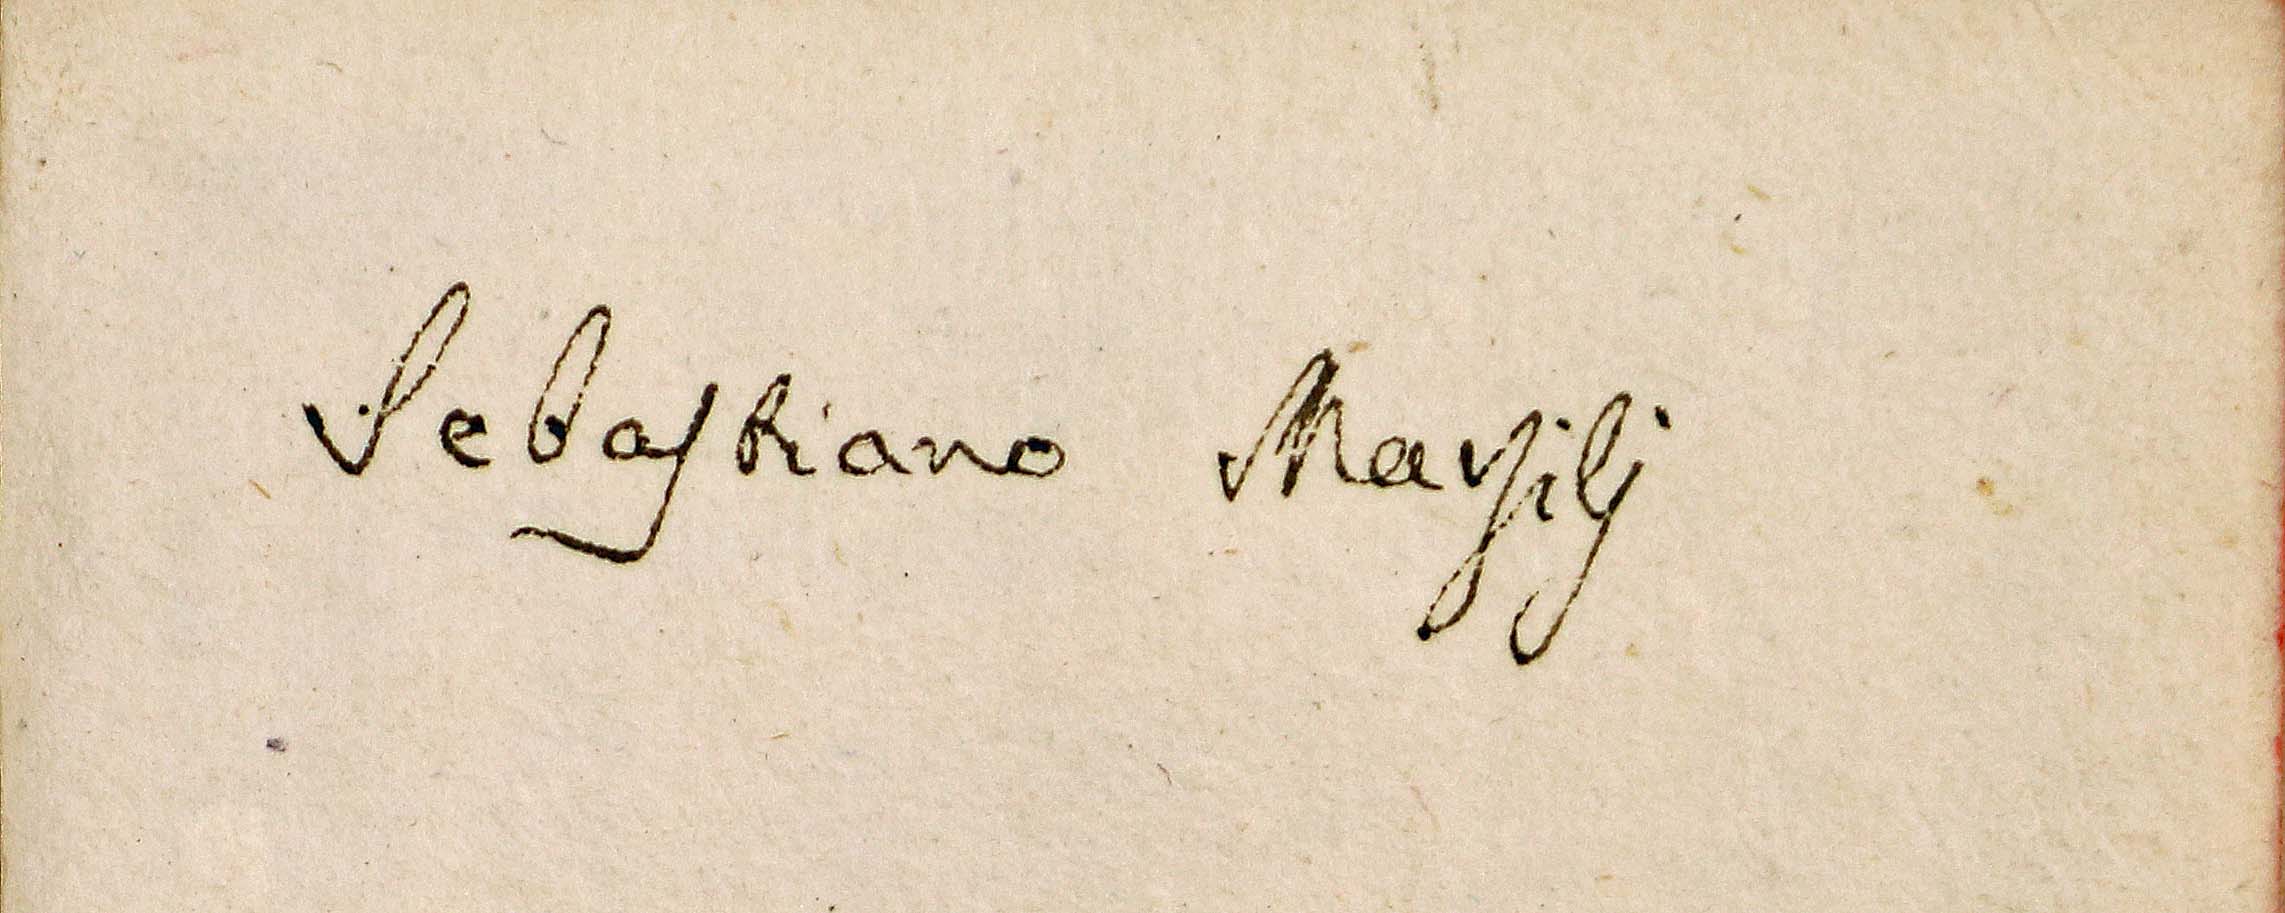 Sebastiano Marsilj